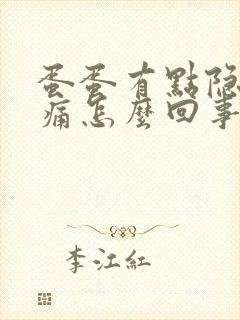 蛋蛋有點隐
痛怎麼回事
李江紅